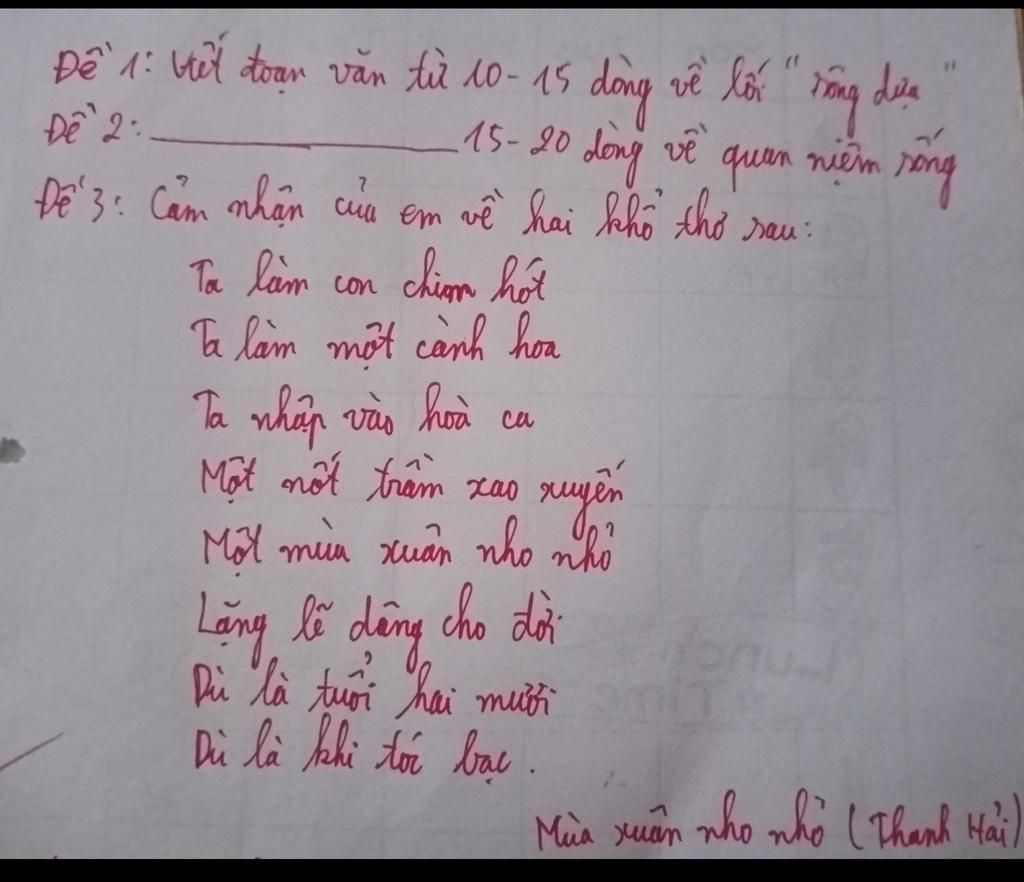 Đề 1: Viết đoạn văn từ 10-15 dòng về lối "sống dựa"
Đề 2: ______ 15-20 dòng về quan niệm sống
Đề 3: Cảm nhận của em về hai khổ thơ sau:
Ta làm con chim hót
Ta làm một cành hoa
Ta nhập vào hoà ca
Một nốt trầm xao xuyến
Một mùa xuân nho nhỏ
Lặng lẽ dâng cho đời
Dù là tuổi hai mươi
Dù là khi tóc bạc.
Mùa xuân nho nhỏ (Thanh Hải)